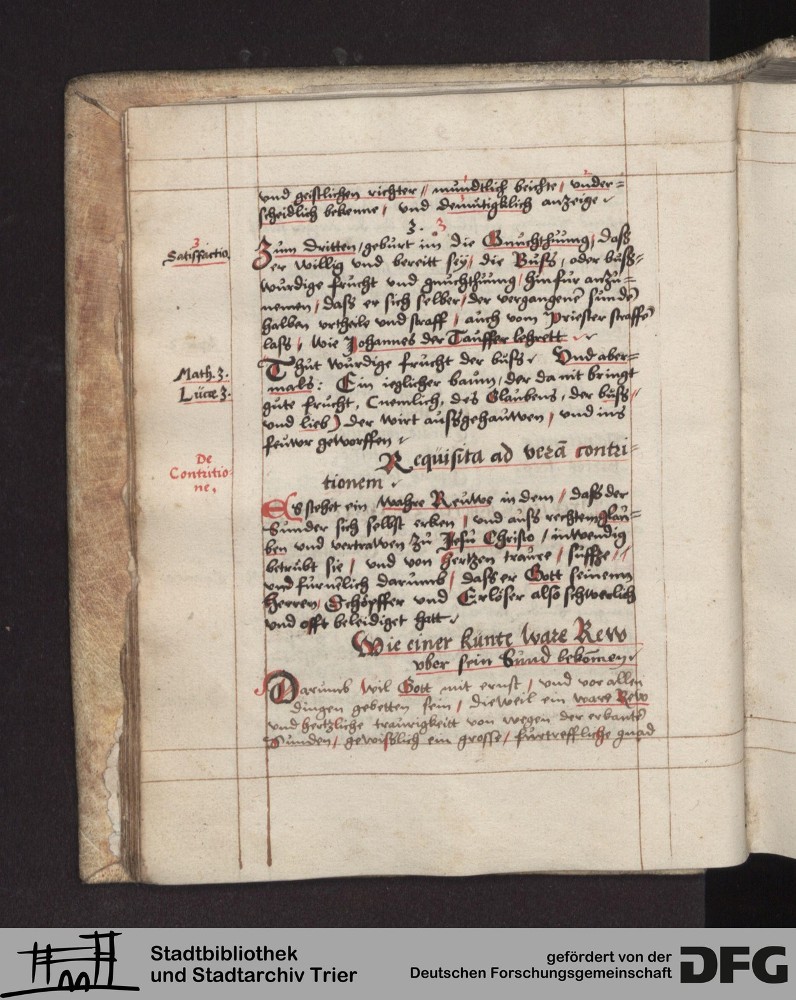 vnd geistlichen richter / mündtlich beichte / vnder=
scheidlich bekenne / vnd demütigklich anzeige
3. 3
3
Satisffactio
Zum dritten / gebürt im die Gnuchthuung / daß
er willig vnd bereitt sey / die Buß / oder buß=
würdige frücht vnd gnuchthuung / hinfur anzu=
nemen / daß er sich selber / der vergangenē sünde
halben vrtheile vnd straff / auch vom Priester straffē
laß / wie Johannes der Tauffer lehrett
Math. 3.
Thut würdige frücht der buß. Vnd aber=
Lucæ 3.
mals: Ein ieglicher baum / der da nit bringt
gute frücht, (nemlich, des Glaubens, der buß /
vnd lieb) der wirt außgehauwen / vnd ins
feuwr geworffen
De
Contritio-
ne.
Requisita ad verā contri=
tionem
Es stehet ein wahre Reuwe in dem / daß der
Sünder sich selbst erken / vnd auß rechtem glau=
ben vnd vertrawen zu Jesu Christo / inwendig
betrübt sie / vnd von hertzen traure / süffze /
vnd fürnēlich darumb / daß er Gott seinem
Herren / Schöpffer vnd Erlöser also schwerlich
vnd offt beleidiget hatt
Wie einer künte ware Rew
vber sein Sünd bekōmen
Darumb wil Gott mit ernst / vnd vor allen
dingen gebetten sein / dieweil ein ware Rew
vnd hertzliche traurigkeitt von wegen der erkantē
Sünden / gewißlich ein grosse / fürtreffliche gnad
Stadtbibliothek
und Stadtarchiv Trier
gefördert von der
Deutschen Forschungsgemeinschaft
DFG